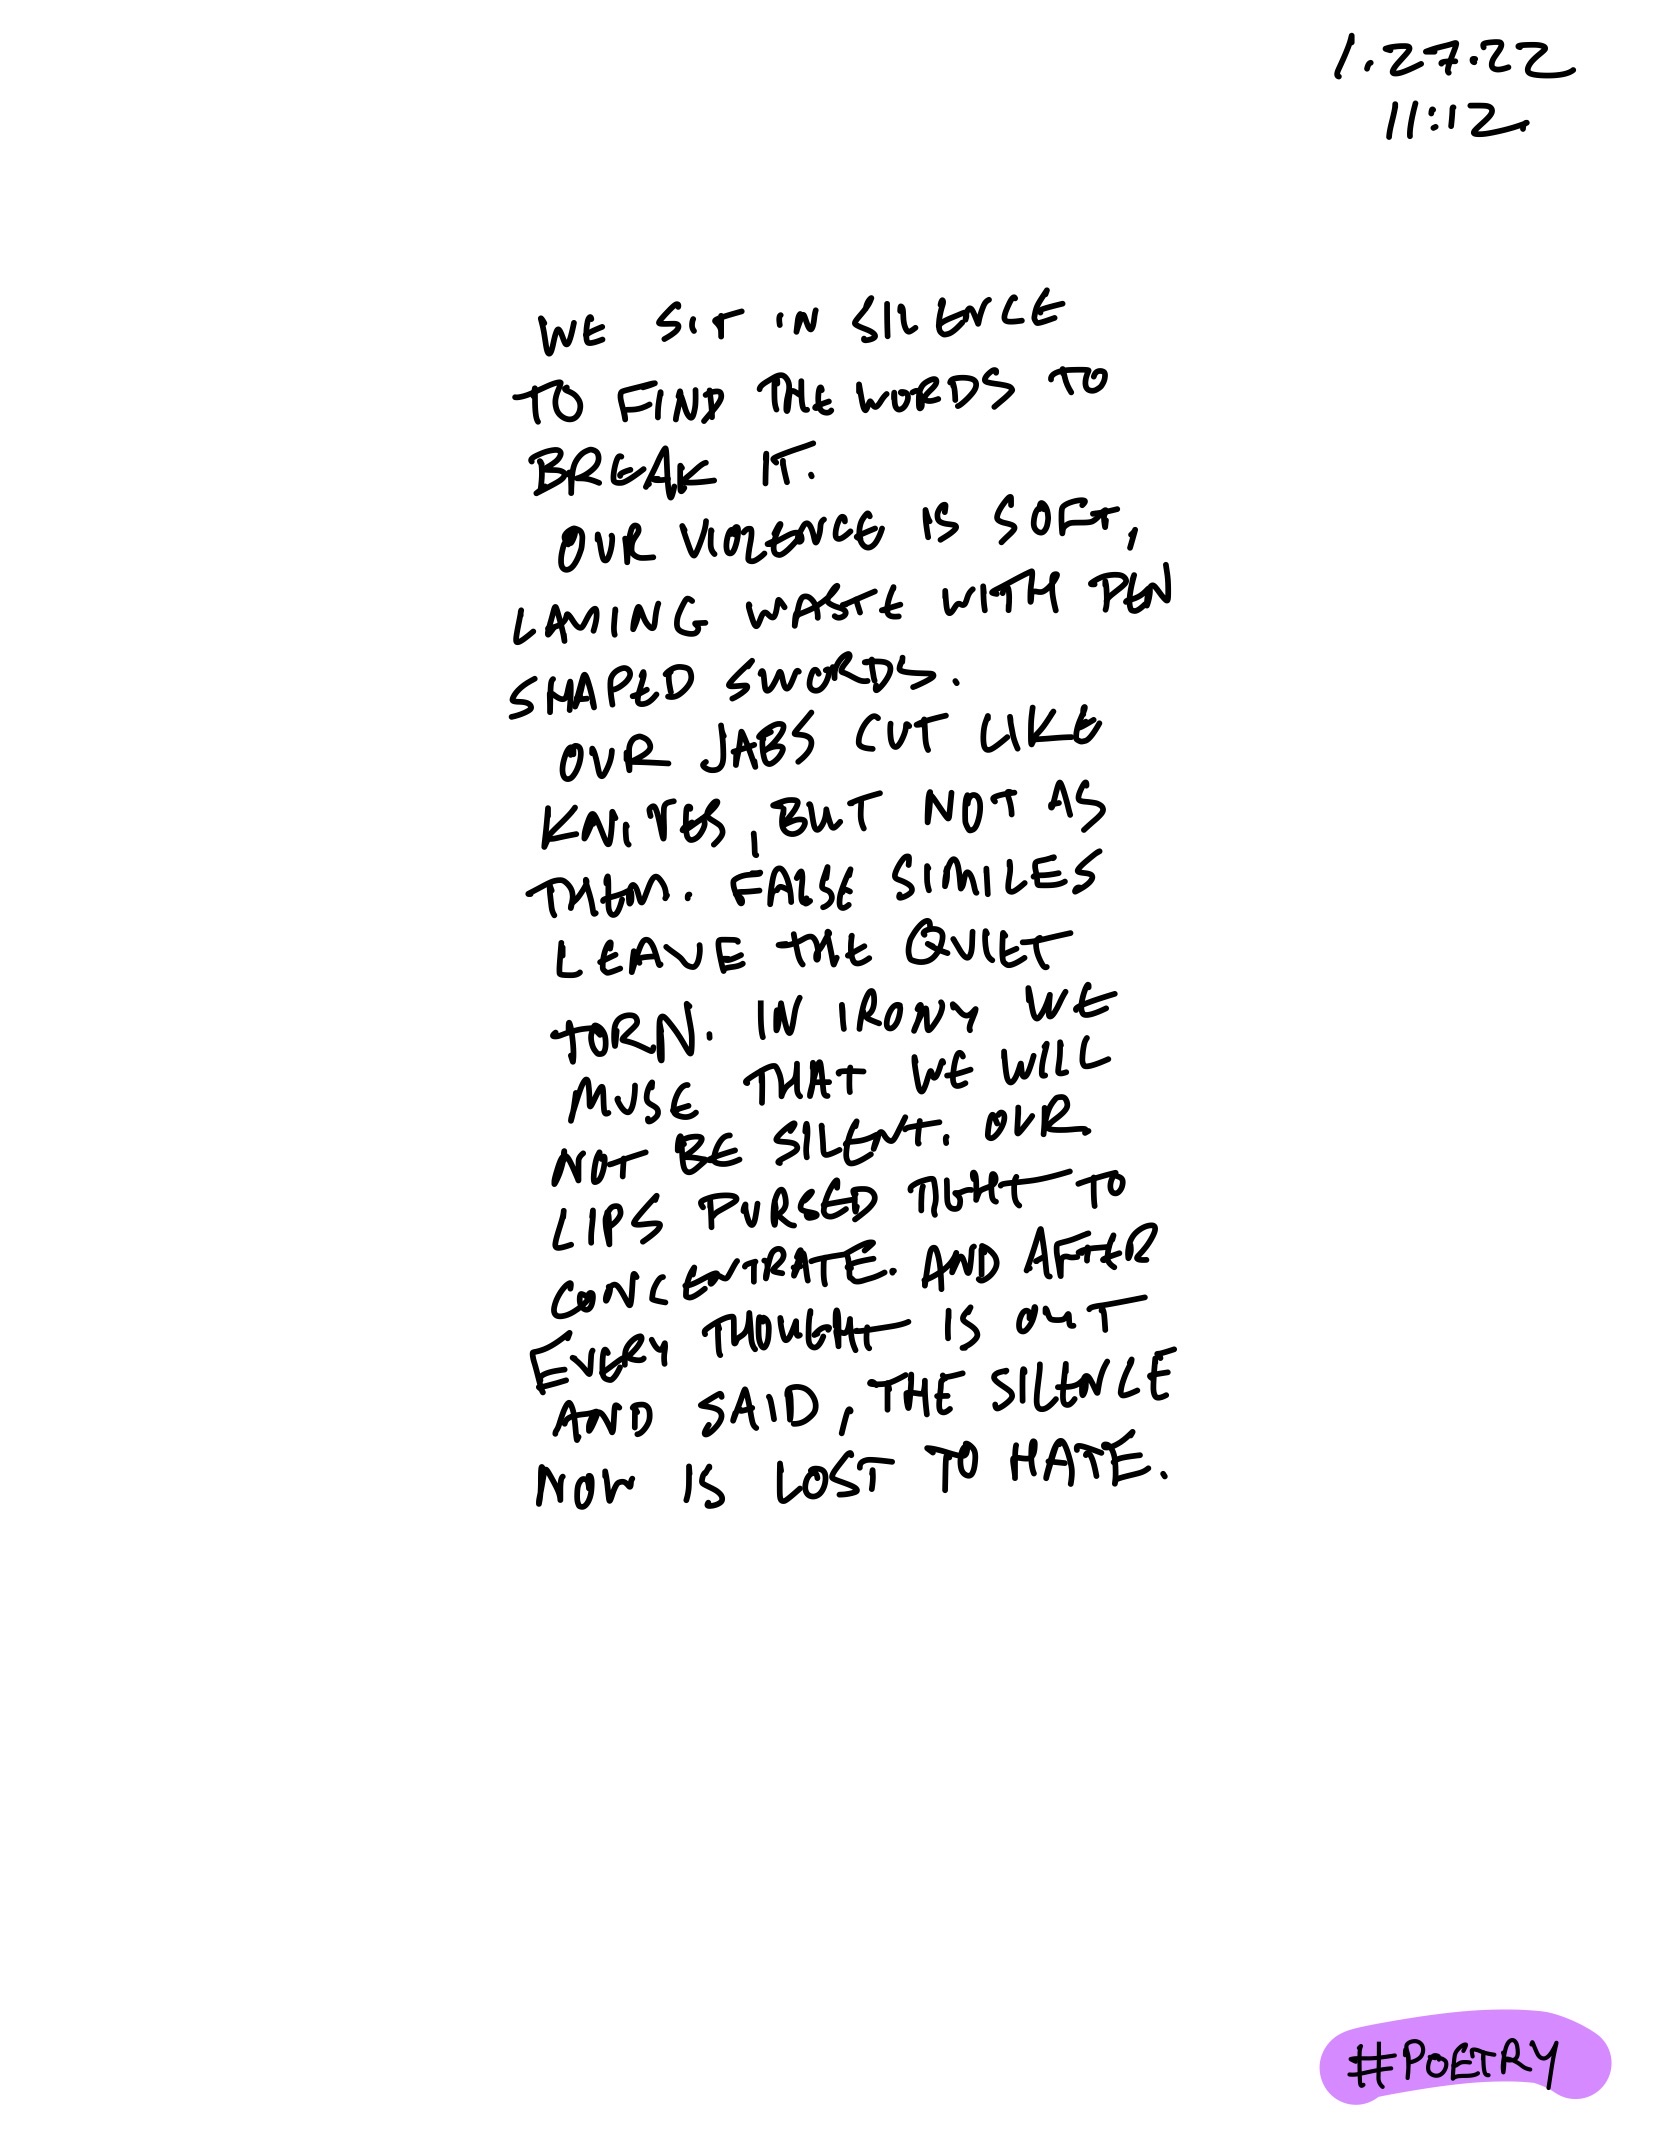 1.27.22
11:12
WE SIT IN SILENCE
TO FIND THE WORDS TO
BREAK IT.
OUR VIOLENCE IS SOFT,
LAYING WASTE WITH PEN
SHAPED SWORDS.
OUR JABS CUT LIKE
KNIVES, BUT NOT AS
THEM. FALSE SIMILES
LEAVE THE QUIET
TORN. IN IRONY WE
MUSE THAT WE WILL
NOT BE SILENT. OUR
LIPS PURSED TIGHT TO
CONCENTRATE. AND AFTER
EVERY THOUGHT IS OUT
AND SAID, THE SILENCE
NOW IS LOST TO HATE.
#POETRY